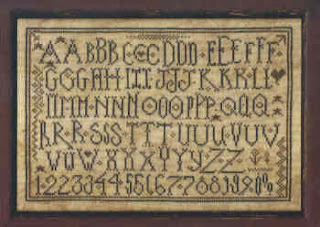 A A B B B C C C D D D E E E F F F
G G G H H I I I J J J K K K L L
M M M N N N O O O P P P Q Q Q
R R R S S S T T T U U U V U V
W W W X X X Y Y Y Z Z Z
1 2 2 3 3 4 4 5 5 6 6 7 7 0 8 9 9 0 0